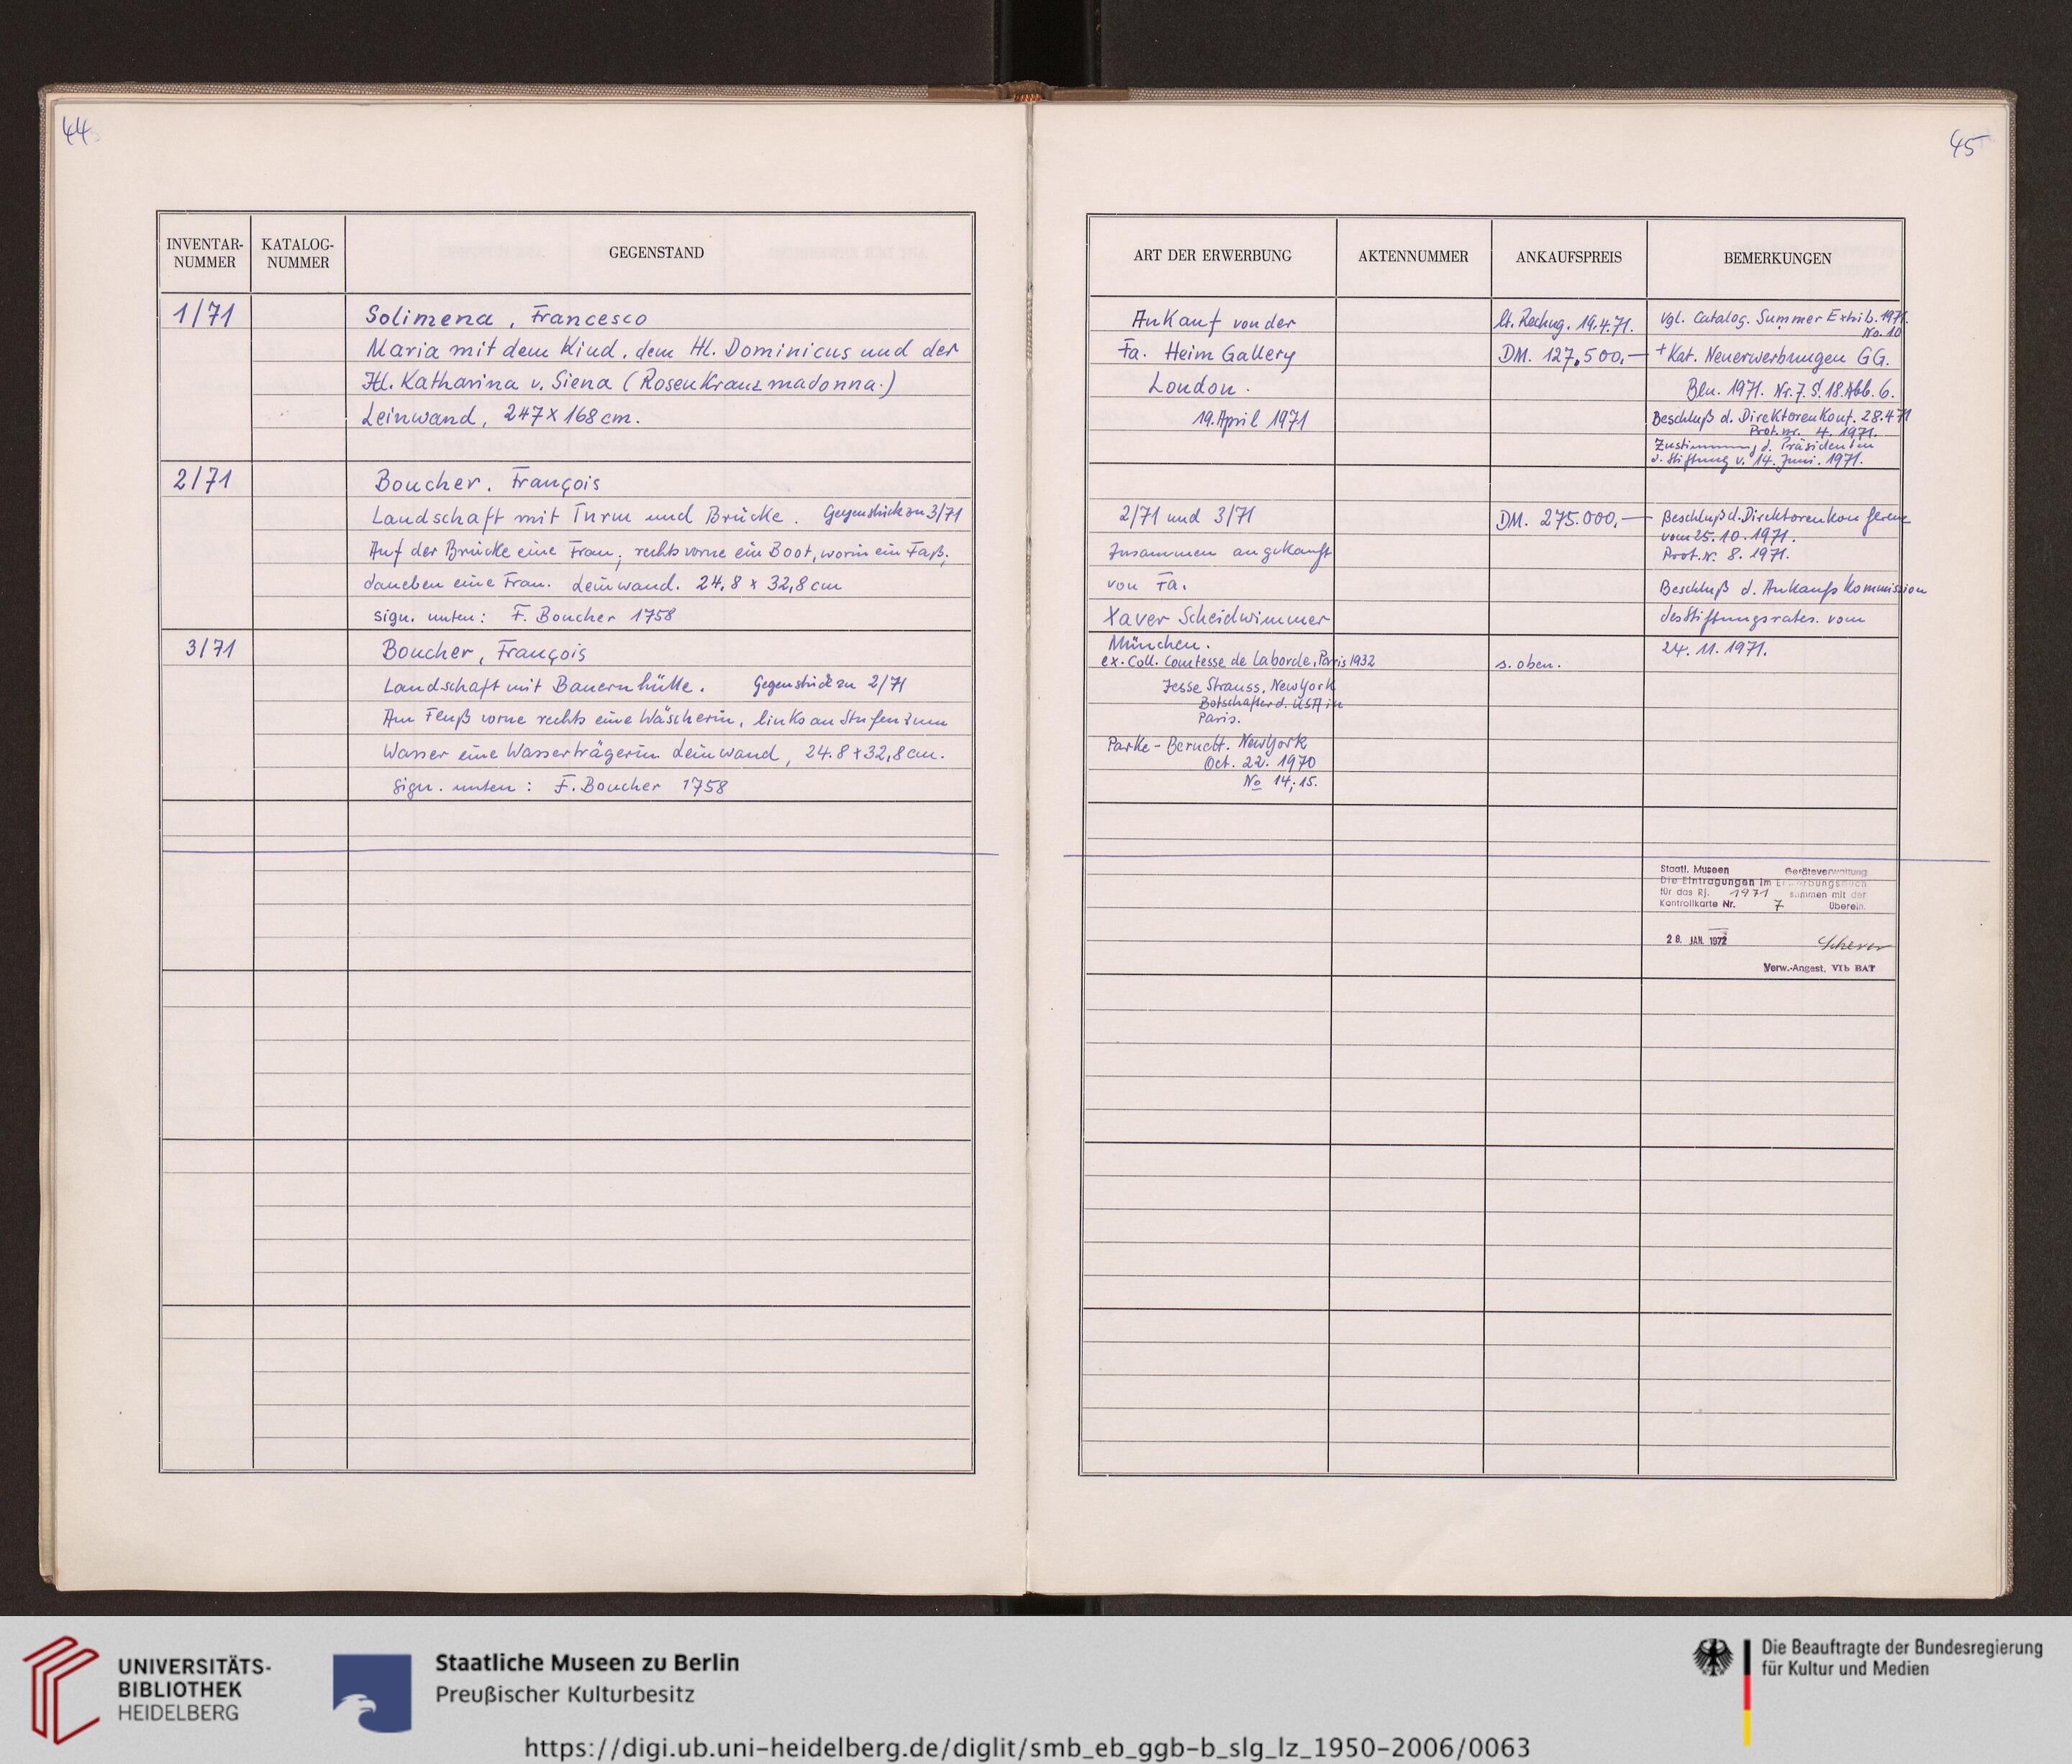 44
45
INVENTAR-
NUMMER
KATALOG-
NUMMER
GEGENSTAND
1/71
Solimena, Francesco
Maria mit dem Kind, dem Hl. Dominicus und der
Hl. Katharina v. Siena (Rosenkranzmadonna.)
Leinwand, 247 x 168 cm.
2/71
Boucher, François
Landschaft mit Turm und Brücke. Gegenstück zu 3/71
Auf der Brücke eine Frau; rechts vorne ein Boot, worin ein Faß;
daneben eine Frau. Leinwand. 24,8 x 32,8 cm
sign. unten: F. Boucher 1758
3/71
Boucher, François
Landschaft mit Bauernhütte. Gegenstück zu 2/71
Am Fluß vorne rechts eine Wäscherin, links an Stufen zum
Wasser eine Wasserträgerin Leinwand, 24.8 x 32,8 cm.
Sign. unten: F. Boucher 1758
ART DER ERWERBUNG
AKTENNUMMER
ANKAUFSPREIS
BEMERKUNGEN
Ankauf von der
Fa. Heim Gallery
London.
19. April 1971
lt. Rechng. 19.4.71.
DM. 127.500.—
vgl. Catalog. Summer Exhib. 1971.
No. 10
+ Kat. Neuerwerbungen GG.
Bln. 1971. Nr. 7. S. 18. Abb. 6.
Beschluß d. Direktorenkonf. 28.4.71
Prot. nr. 4. 1971.
Zustimmung d. Präsidenten
d. Stiftung v. 14. Juni. 1971.
2/71 und 3/71
zusammen angekauft
von Fa.
Xaver Scheidwimmer
München.
DM. 275.000,—
Beschluß d. Direktorenkonferenz
vom 25.10.1971.
Prot. nr. 8. 1971.
Beschluß d. Ankaufskommission
des Stiftungsrates. vom
24. 11. 1971.
ex. Coll. Comtesse de Laborde, Paris 1932
s. oben.
Jesse Strauss, New York
Botschafter d. USA in
Paris.
Parke-Bernett. New York
Oct. 22. 1970
No 14; 15.
Staatl. Museen Geräteverwaltung
Die Eintragungen im Erwerbungsbuch
für das Rj. 1971 stimmen mit der
Kontrollkarte Nr. 7 überein.
28. JAN. 1972
Scherer
Verw.-Angest. VIb BAT
UNIVERSITÄTS-
BIBLIOTHEK
HEIDELBERG
Staatliche Museen zu Berlin
Preußischer Kulturbesitz
Die Beauftragte der Bundesregierung
für Kultur und Medien
https://digi.ub.uni-heidelberg.de/diglit/smb_eb_ggb-b_slg_lz_1950-2006/0063